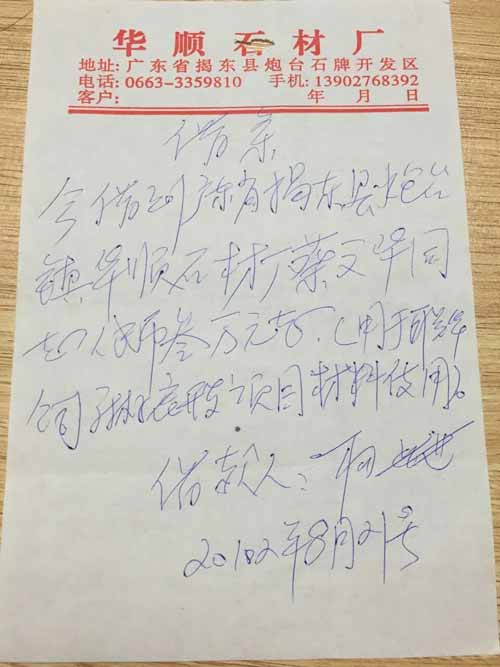 华顺石材厂
地址:广东省揭东县炮台石牌开发区
电话:0663-3359810 手机:13902768392
客户: 年 月 日
借条
今借到广东省揭东县炮台
镇华顺石材厂蔡文华同
志人民币叁万元 (用于
项目材料使用)
借款人:
年8月21号